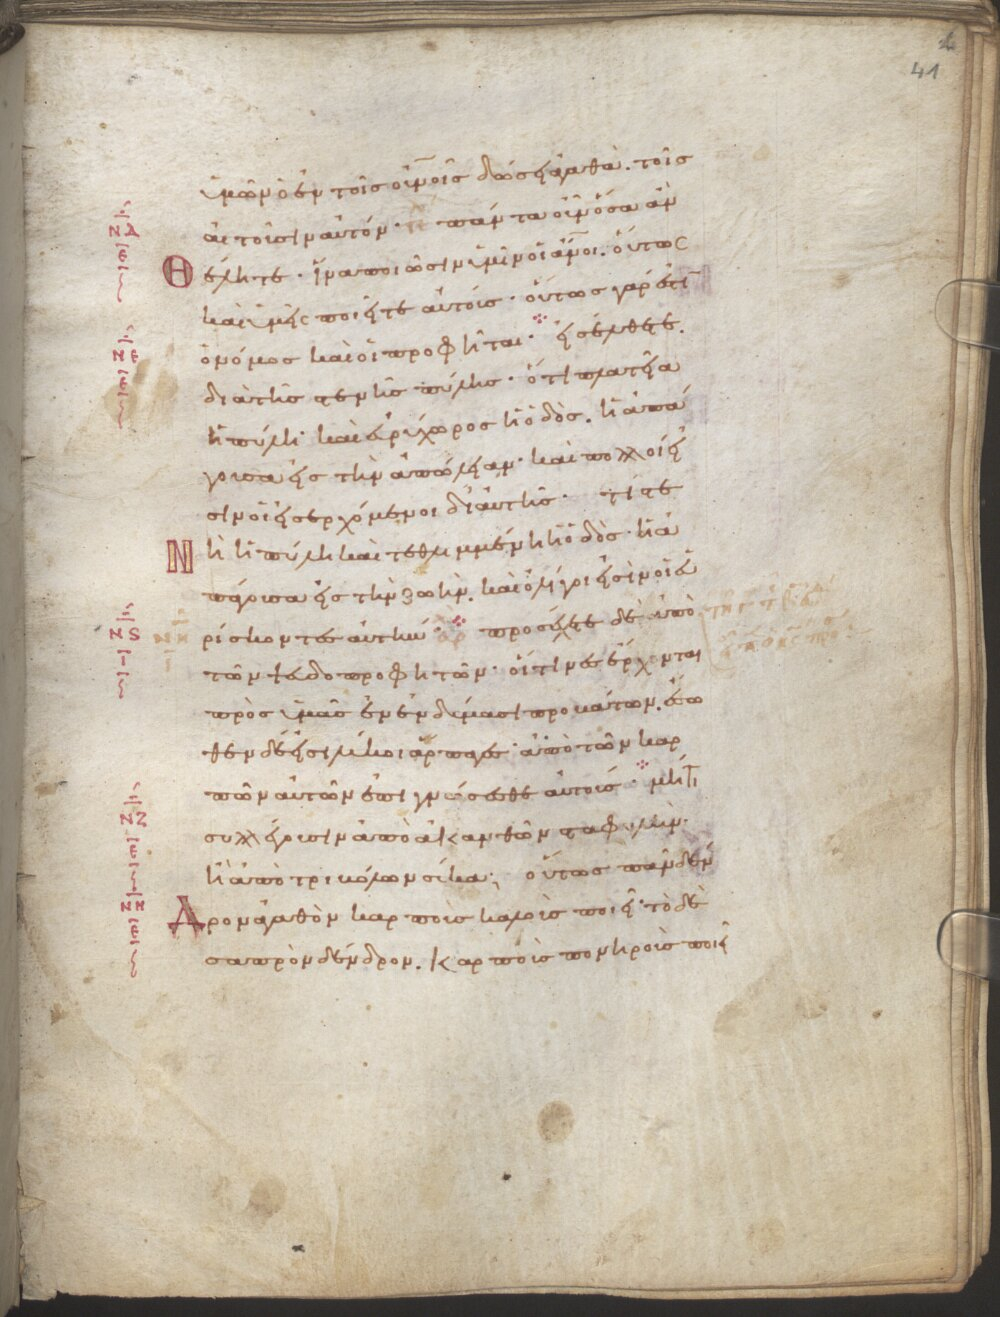 41
ὑμῶν ὁ ἐν τοῖς οὐνοῖς δώσει ἀγαθὰ. τοῖς
αἰτοῦσιν αὐτόν· πάντα οὖν ὅσα ἂν
Θέλητε· ἵνα ποιῶσιν ὑμῖν οἱ ἄνοι. οὕτως
καὶ ὑμεῖς ποιεῖτε αὐτοῖς· οὕτως γάρ ἐστι
ὁ νόμος καὶ οἱ προφῆται· εἰσέλθετε.
διὰ τῆς στενῆς πύλης· ὅτι πλατεῖα
ἡ πύλη· καὶ εὐρύχωρος ἡ ὁδὸς. ἡ ἀπά
γουσα εἰς τὴν ἀπώλειαν· καὶ πολλοί εἰ
σιν οἱ εἰσερχόμενοι δι' αὐτῆς· τί στε
Νὴ ἡ πύλη καὶ τεθλιμμένη ἡ ὁδὸς· ἡ ἀ
πάγουσα εἰς τὴν ζωὴν. καὶ ὀλίγοι εἰσὶν οἱ εὑ
ρίσκοντες αὐτήν· προσέχετε δὲ ἀπὸ
τῶν ψευδοπροφητῶν· οἵτινες ἔρχονται
πρὸς ὑμᾶς ἐν ἐνδύμασι προβάτων. ἔσω
θεν δέ εἰσι λύκοι ἅρπαγες· ἀπὸ τῶν καρ
πῶν αὐτῶν ἐπιγνώσεσθε αὐτούς· μήτι
συλλέγουσιν ἀπὸ ἀκανθῶν σταφυλὴν·
ἢ ἀπὸ τριβόλων σῦκα; οὕτως πᾶν δέν
Δρον ἀγαθὸν καρποὺς καλοὺς ποιεῖ· τὸ δὲ
σαπρὸν δένδρον. καρποὺς πονηροὺς ποιεῖ